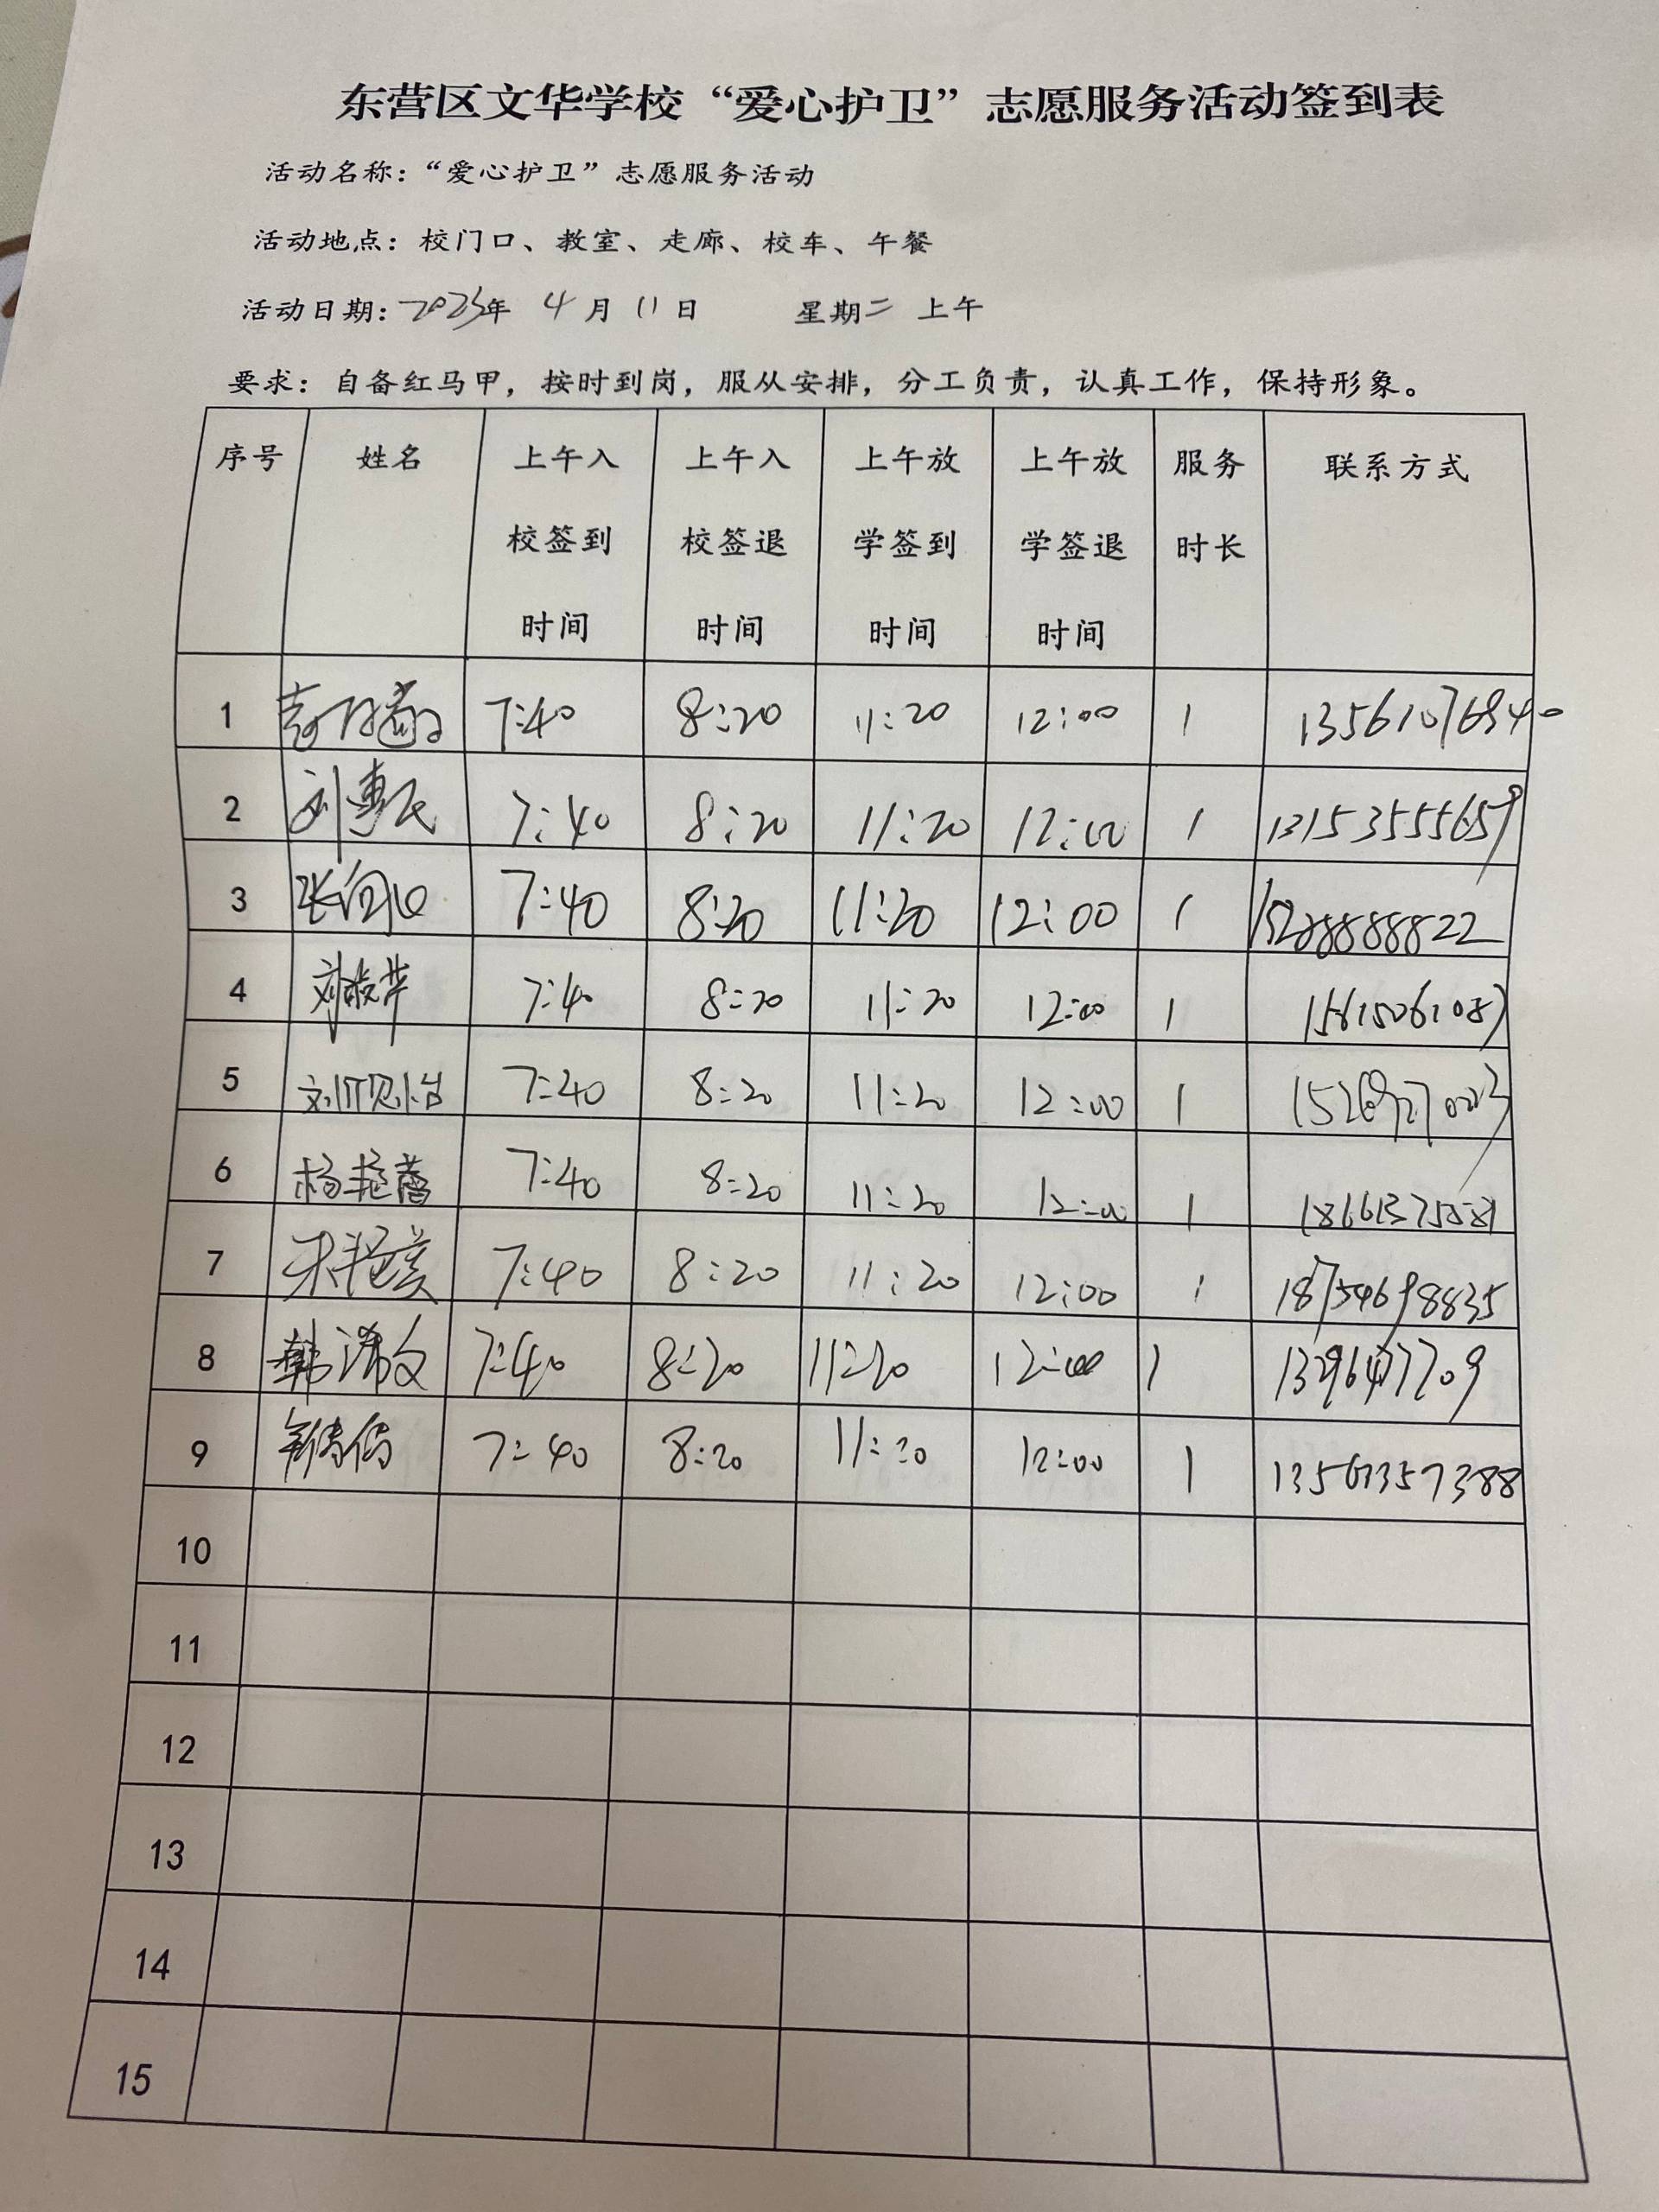 东营区文华学校“爱心护卫”志愿服务活动签到表
活动名称：“爱心护卫”志愿服务活动
活动地点：校门口、教室、走廊、校车、午餐
活动日期：2023年 4月 11日 星期二 上午
要求：自备红马甲，按时到岗，服从安排，分工负责，认真工作，保持形象。
序号 姓名 上午入校签到时间 上午入校签退时间 上午放学签到时间 上午放学签退时间 服务时长 联系方式
1 7:40 8:20 11:20 12:00 1
2 刘惠民 7:40 8:20 11:20 12:00 1 13153555659
3 7:40 8:20 11:20 12:00 1 15288888822
4 7:40 8:20 11:20 12:00 1 15615061087
5 7:40 8:20 11:20 12:00 1
6 杨艳蕾 7:40 8:20 11:20 12:00 1
7 宋艳美 7:40 8:20 11:20 12:00 1 18754698835
8 韩沸文 7:40 8:20 11:20 12:00 1
9 7:40 8:20 11:20 12:00 1
10
11
12
13
14
15